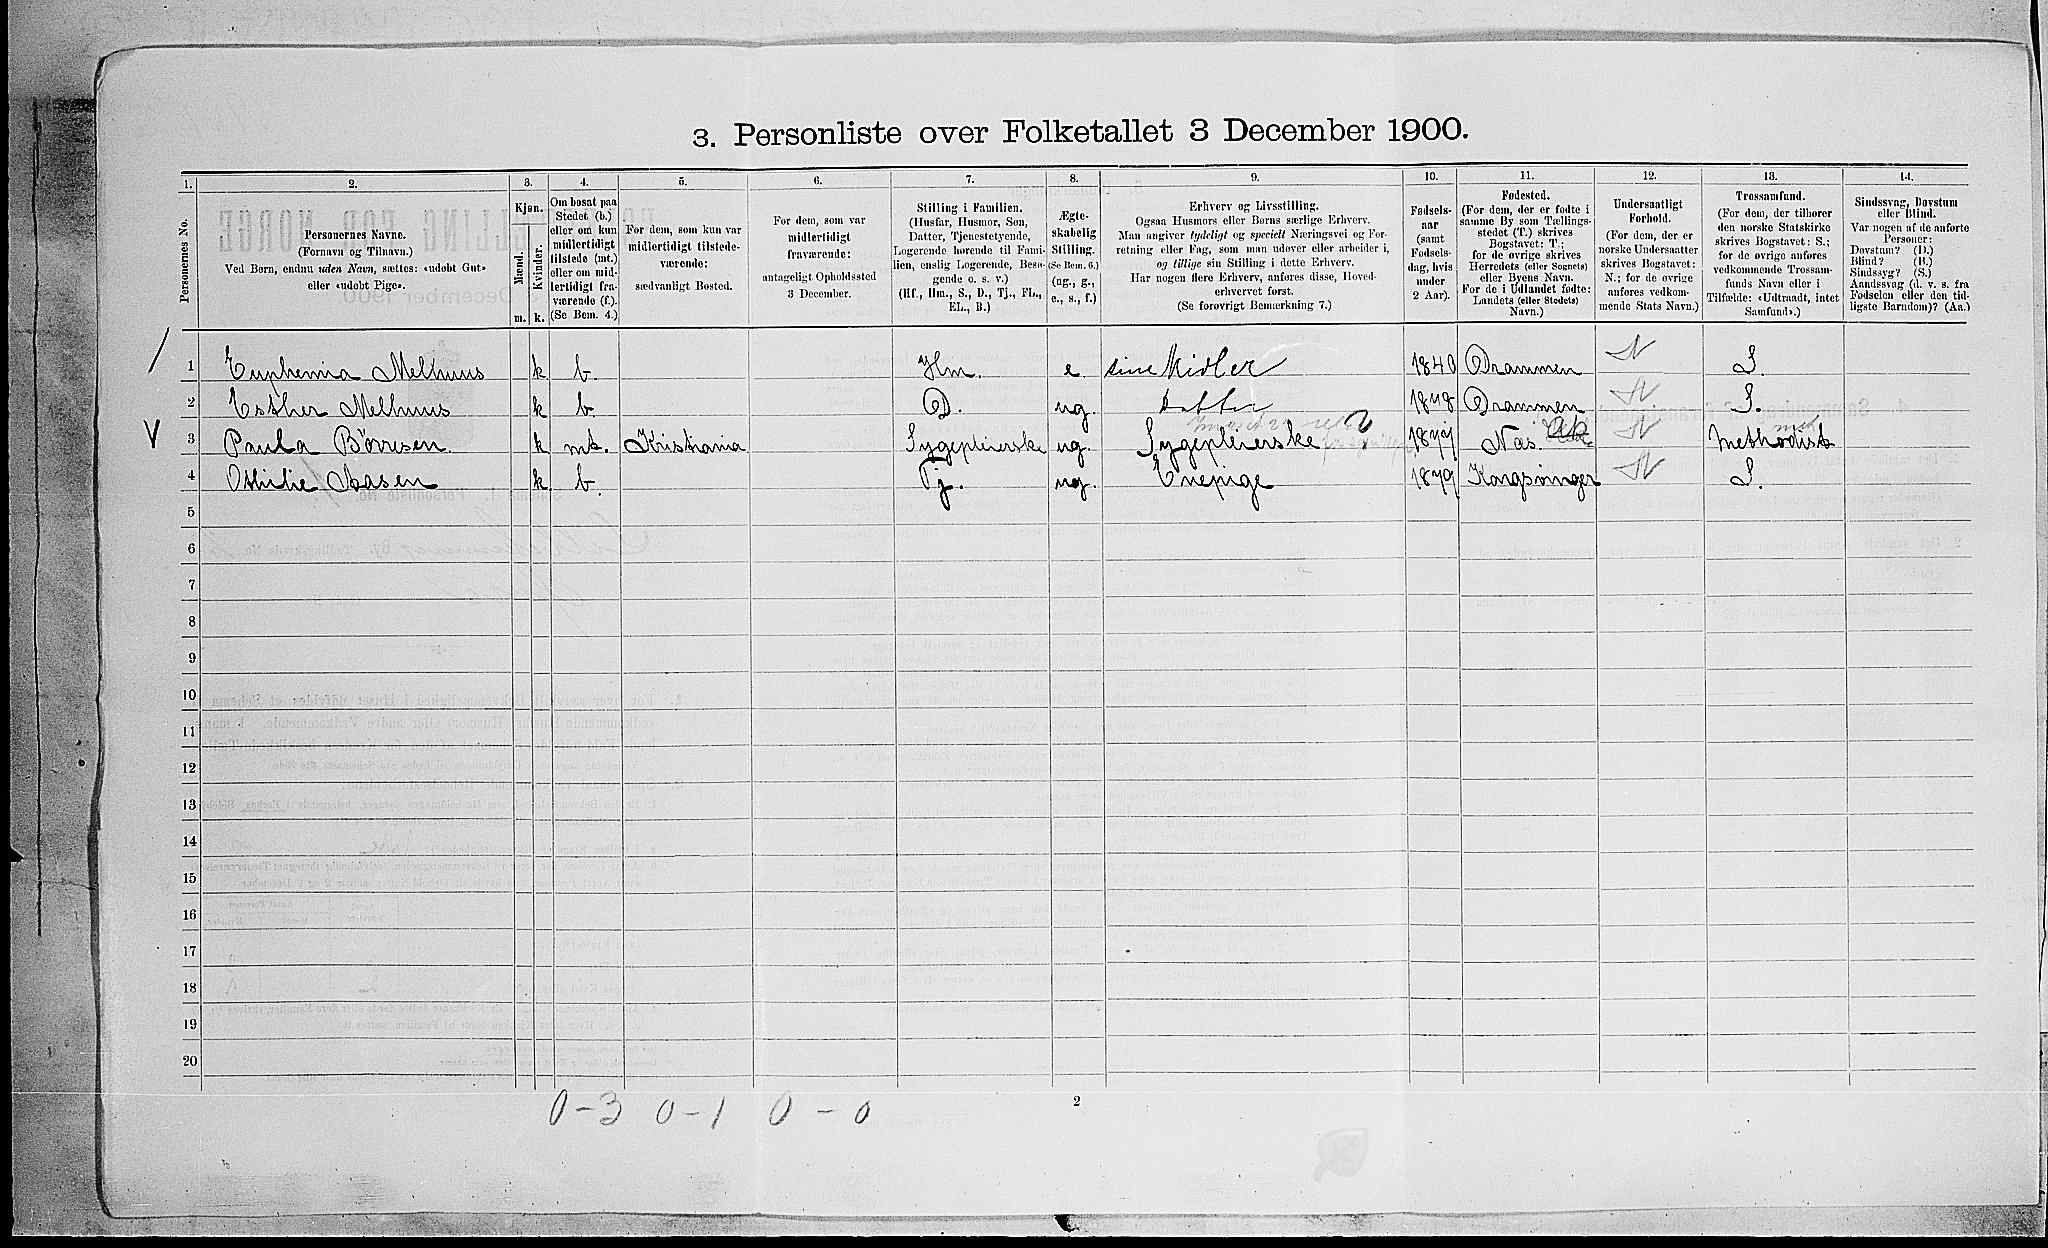 3. Personliste over Folketallet 3 December 1900.
1. 2. 3. 4. 5. 6. 7. 8. 9. 10. 11. 12. 13. 14.
Personernes No.
Personernes Navne.
(Fornavn og Tilnavn.)
Ved Børn, endnu uden Navn, sættes: «udøbt Gut»
eller «udøbt Pige».
Kjøn.
Mænd.
Kvinder.
m. k.
Om bosat paa
Stedet (b.)
eller om kun
midlertidigt
tilstede (mt.)
eller om mid-
lertidigt fra-
værende (f.).
(Se Bem. 4.)
For dem, som kun var
midlertidigt tilstede-
værende:
sædvanligt Bosted.
For dem, som var
midlertidigt
fraværende:
antageligt Opholdssted
3 December.
Stilling i Familien.
(Husfar, Husmor, Søn,
Datter, Tjenestetyende,
Logerende hørende til Fami-
lien, enslig Logerende, Besø-
gende o. s. v.)
(Hf., Hm., S., D., Tj., FL.,
EL., B.)
Ægte-
skabelig
Stilling.
(Se Bem. 6.)
(ug., g.,
e., s., f.)
Erhverv og Livsstilling.
Ogsaa Husmors eller Børns særlige Erhverv.
Man angiver tydeligt og specielt Næringsvei og For-
retning eller Fag, som man udøver eller arbeider i,
og tillige sin Stilling i dette Erhverv.
Har nogen flere Erhverv, anføres disse, Hoved-
erhvervet først.
(Se forøvrigt Bemærkning 7.)
Fødsels-
aar
(samt
Fødsels-
dag, hvis
under
2 Aar).
Fødested.
(For dem, der er fødte i
samme By som Tællings-
stedet (T.) skrives
Bogstavet: T.;
for de øvrige skrives
Herredets (eller Sognets)
eller Byens Navn.
For de i Udlandet fødte:
Landets (eller Stedets)
Navn.)
Undersaatligt
Forhold.
(For dem, der er
norske Undersaatter
skrives Bogstavet:
N.; for de øvrige
anføres vedkom-
mende Stats Navn.)
Trossamfund.
(For dem, der tilhører
den norske Statskirke
skrives Bogstavet: S.;
for de øvrige anføres
vedkommende Trossam-
funds Navn eller i
Tilfælde: «Udtraadt, intet
Samfund».)
Sindssvag, Døvstum
eller Blind.
Var nogen af de anførte
Personer:
Døvstum? (D.)
Blind? (B.)
Sindssyg? (S.)
Aandssvag (d. v. s. fra
Fødselen eller den tid-
ligste Barndom)? (Aa.)
1 Euphemia Melhuus k b. Hm. e. sine Midler 1840 Drammen N S.
2 Esther Melhuus k b. D. ug. Datter 1878 Drammen N S.
3 Paula Børresen. k mt. Kristiania Sygepleierske ug. Sygepleierske 1877 Næs Ak. N Methodist
4 Othilie Aasen k b. Tj. ug. Enepige 1879 Kongsvinger N S.
5
6
7
8
9
10
11
12
13
14
15
16
17
18
19
20
0-3 0-1 0-0
2